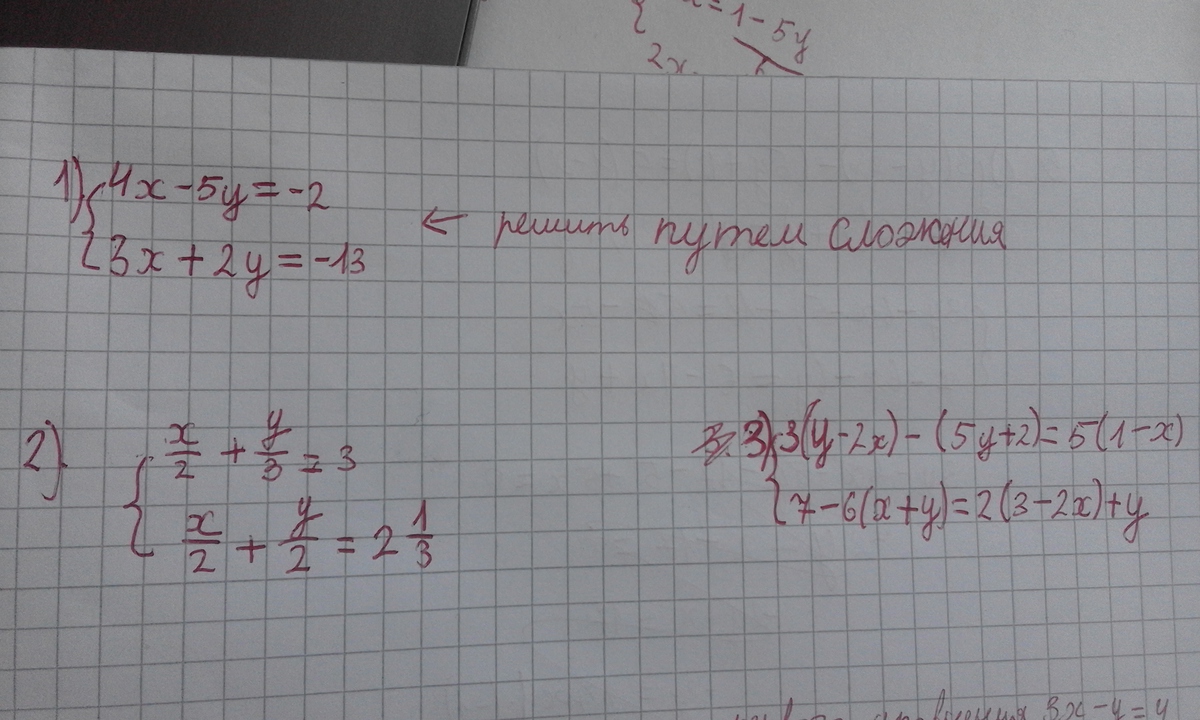 x = 1 - 5y
2x
1) { 4x - 5y = -2
{ 3x + 2y = -13
← решить путем сложения
2) { x/2 + y/3 = 3
{ x/2 + y/2 = 2 1/3
3) { 3(y - 2x) - (5y + 2) = 5(1 - x)
{ 7 - 6(x + y) = 2(3 - 2x) + y
3x - y = 4